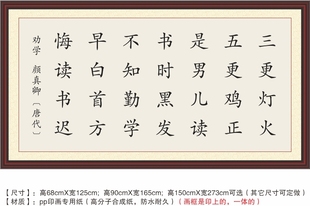 三更灯火
五更鸡正
是男儿读
书时黑发
不知勤学
早白首方
悔读书迟
劝学 颜真卿〔唐代〕
【尺寸】：高68cmX宽125cm; 高90cmX宽165cm; 高150cmX宽273cm可选（其它尺寸可定做）
【材质】：pp印画专用纸（高分子合成纸，防水耐久）（画框是印上的，一体的）